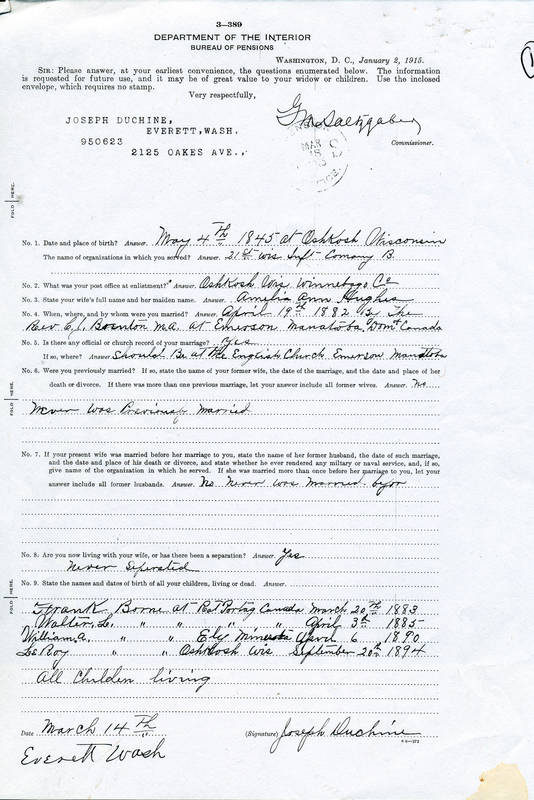 3—389
DEPARTMENT OF THE INTERIOR
BUREAU OF PENSIONS
WASHINGTON, D. C., January 2, 1915.
SIR: Please answer, at your earliest convenience, the questions enumerated below. The information
is requested for future use, and it may be of great value to your widow or children. Use the inclosed
envelope, which requires no stamp.
Very respectfully,
JOSEPH DUCHINE,
EVERETT, WASH.
950623
2125 OAKES AVE.,
G. M. Saltzgaber
Commissioner.
MAR
FOLD HERE.
No. 1. Date and place of birth? Answer. May 4th 1845 at Oshkosh Wisconsin
The name of organizations in which you served? Answer. 21st Wis Inft Comany B.
No. 2. What was your post office at enlistment? Answer. Oshkosh Wis Winnebago Co
No. 3. State your wife's full name and her maiden name. Answer. Amelia Ann Hughes
No. 4. When, where, and by whom were you married? Answer. April 19th 1882 By The
Rev. C. J. M.A. at Emerson Manatoba, Domt Canada
No. 5. Is there any official or church record of your marriage? Yes
If so, where? Answer. Should Be at the English Church Emerson Manatoba
No. 6. Were you previously married? If so, state the name of your former wife, the date of the marriage, and the date and place of her
death or divorce. If there was more than one previous marriage, let your answer include all former wives. Answer. No
FOLD HERE.
Never was Previously Married
No. 7. If your present wife was married before her marriage to you, state the name of her former husband, the date of such marriage,
and the date and place of his death or divorce, and state whether he ever rendered any military or naval service, and, if so,
give name of the organization in which he served. If she was married more than once before her marriage to you, let your
answer include all former husbands. Answer. No Never was Married befor
No. 8. Are you now living with your wife, or has there been a separation? Answer. Yes
Never Seperated
No. 9. State the names and dates of birth of all your children, living or dead. Answer.
FOLD HERE.
Frank Borne at Rat Portag Canada March 20th 1883
Walter, Le. " " " " April 3th 1885
William A. " " Ely Minesota April 6 1890
Le Roy " " Oshkosh Wis September 20th 1894
All Children living
Date March 14th
(Signature) Joseph Duchine
Everett Wash